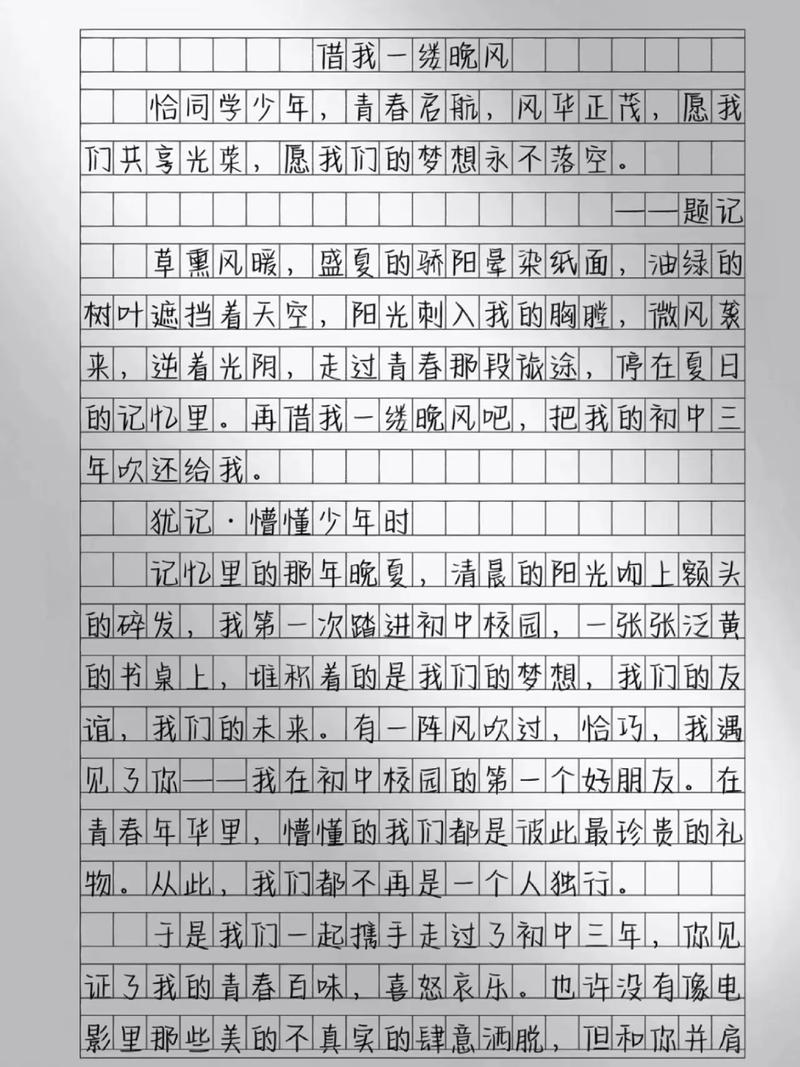 借我一缕晚风
恰同学少年，青春启航，风华正茂，愿我
们共享光荣，愿我们的梦想永不落空。
——题记
草熏风暖，盛夏的骄阳晕染纸面，油绿的
树叶遮挡着天空，阳光刺入我的胸膛，微风袭
来，逆着光阴，走过青春那段旅途，停在夏日
的记忆里。再借我一缕晚风吧，把我的初中三
年吹还给我。
犹记·懵懂少年时
记忆里的那年晚夏，清晨的阳光吻上额头
的碎发，我第一次踏进初中校园，一张张泛黄
的书桌上，堆积着的是我们的梦想，我们的友
谊，我们的未来。有一阵风吹过，恰巧，我遇
见了你——我在初中校园的第一个好朋友。在
青春年华里，懵懂的我们都是彼此最珍贵的礼
物。从此，我们都不再是一个人独行。
于是我们一起携手走过了初中三年，你见
证了我的青春百味，喜怒哀乐。也许没有像电
影里那些美的不真实的肆意洒脱，但和你并肩